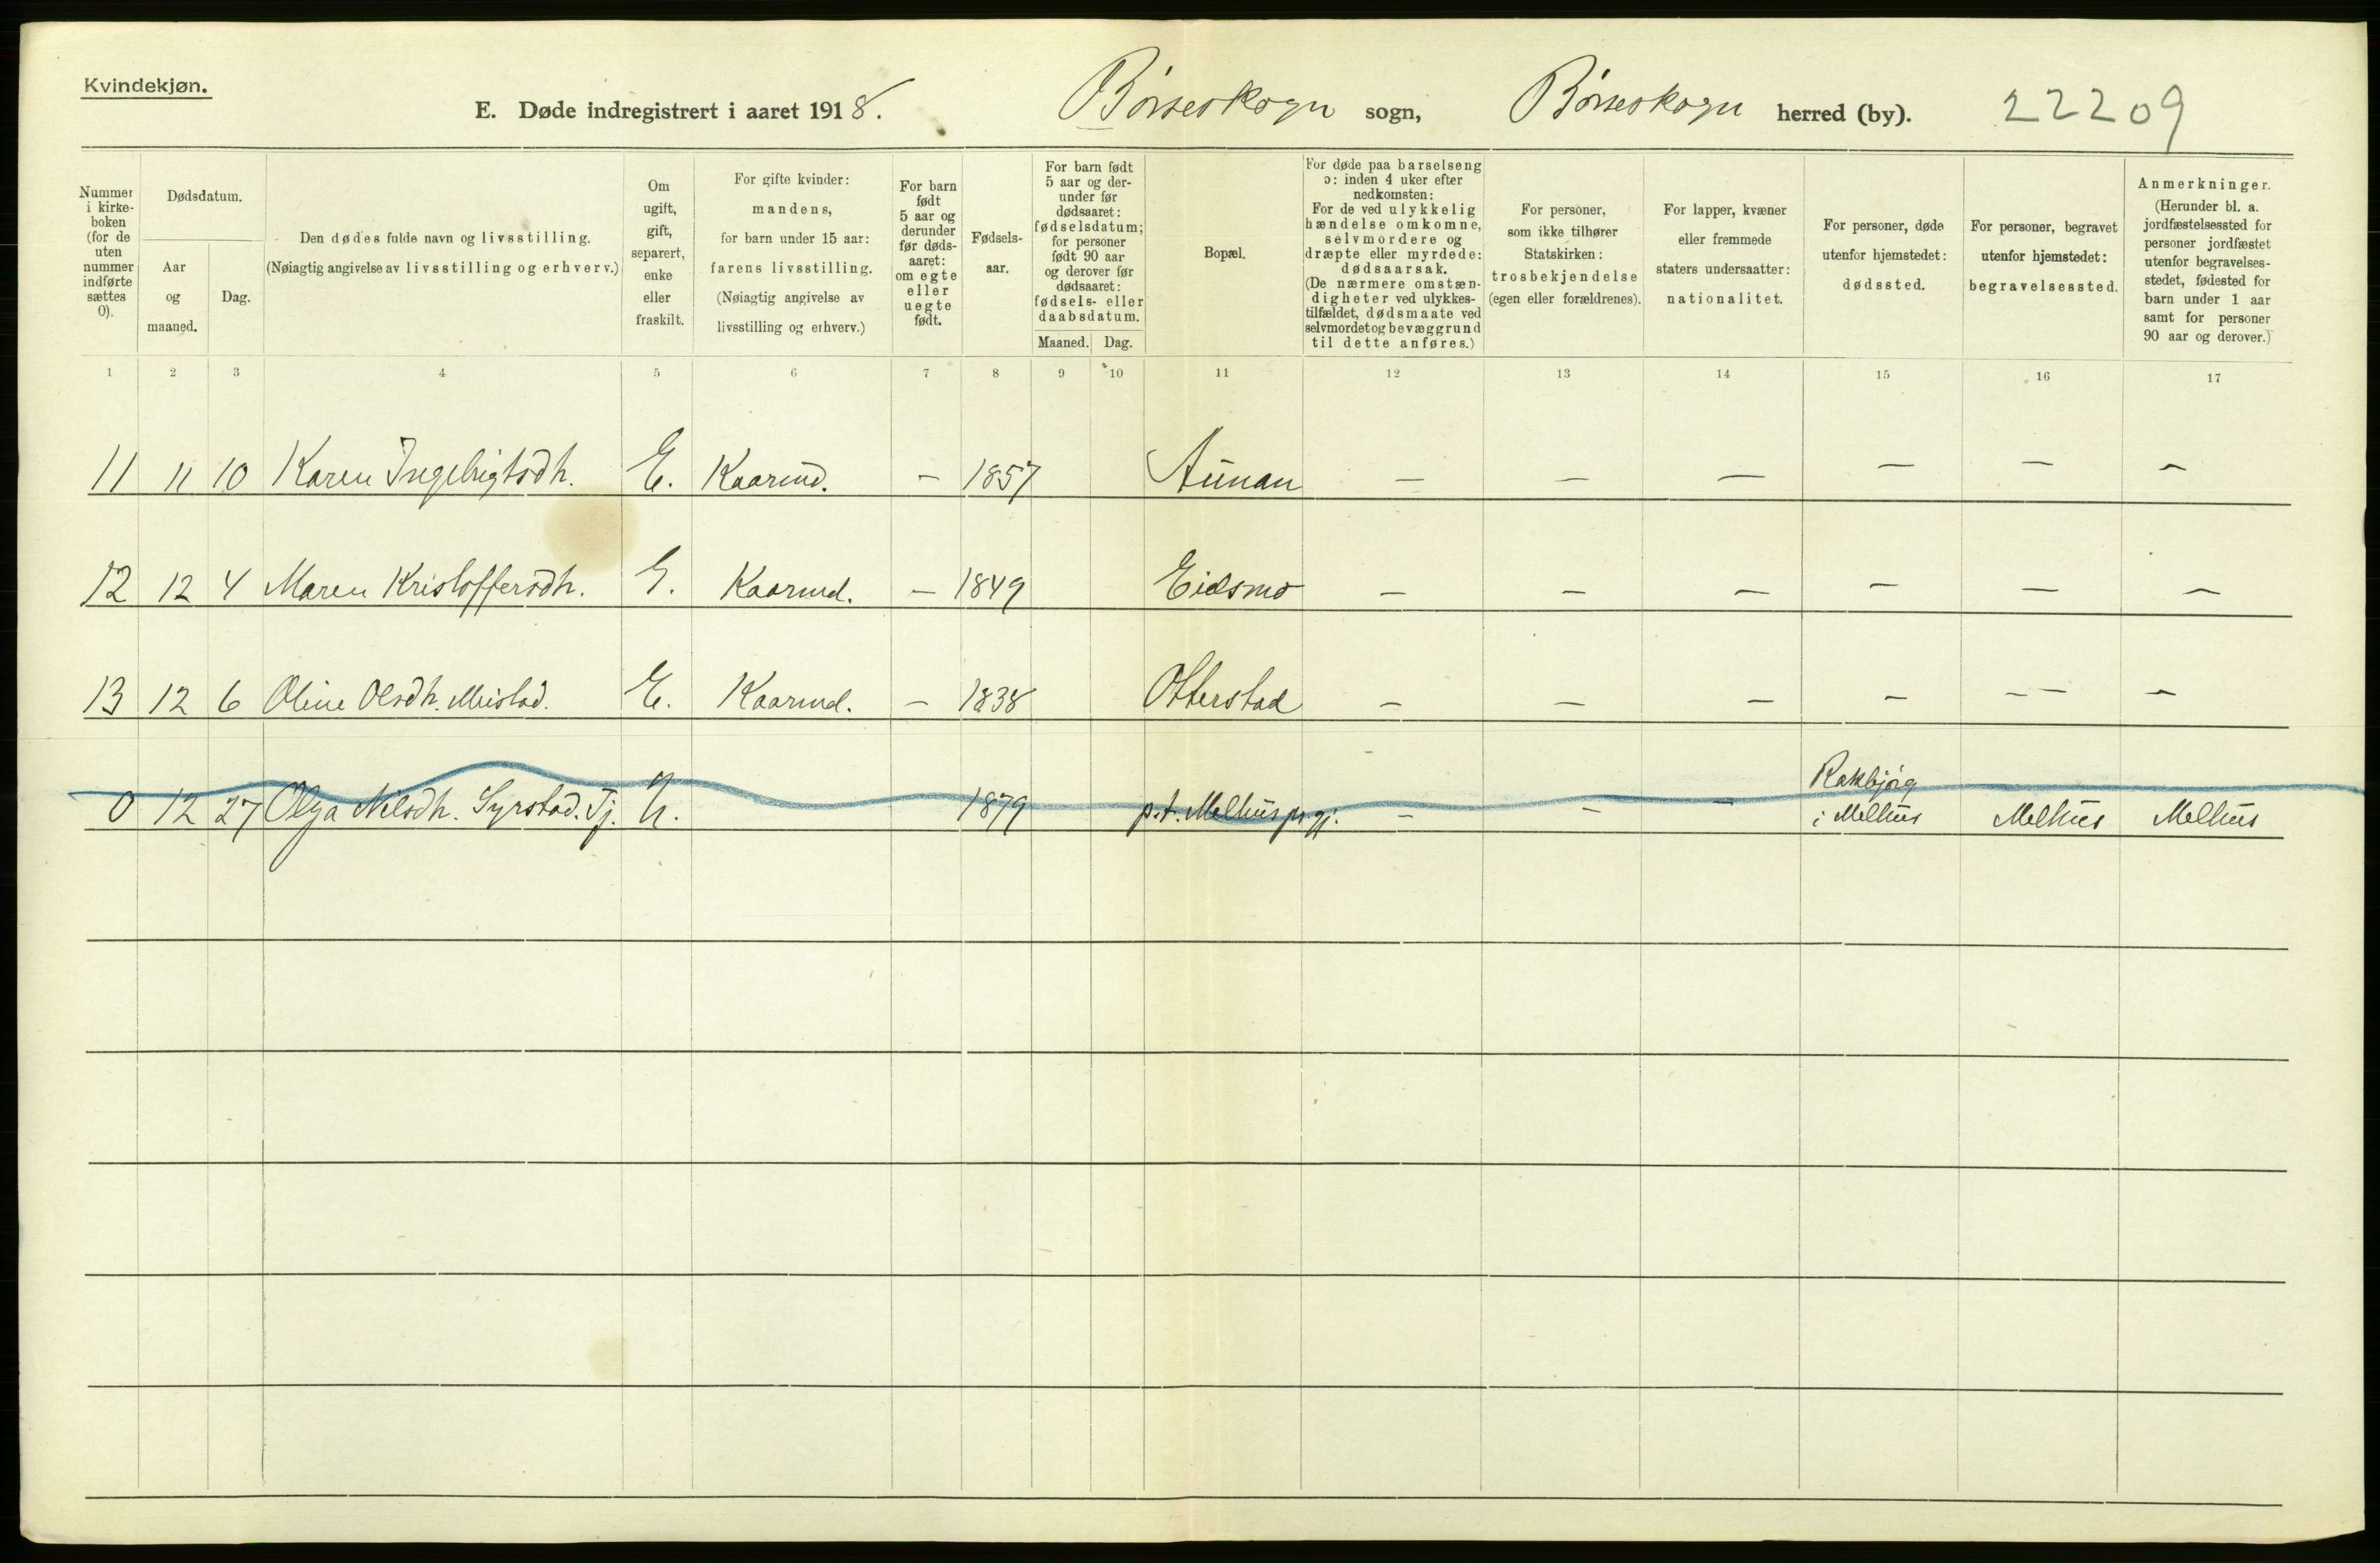 Kvindekjøn.
E. Døde indregistrert i aaret 1918. Børseskogn sogn, Børseskogn herred (by). 22209
Nummer i kirkeboken (for de uten nummer indførte sættes 0).
Dødsdatum.
Aar og maaned.
Dag.
Den dødes fulde navn og livsstilling.
(Nøiagtig angivelse av livsstilling og erhverv.)
Om ugift, gift, separert, enke eller fraskilt.
For gifte kvinder: mandens, for barn under 15 aar: farens livsstilling. (Nøiagtig angivelse av livsstilling og erhverv.)
For barn født 5 aar og derunder før dødsaaret: om egte eller uegte født.
Fødselsaar.
For barn født 5 aar og derunder før dødsaaret: fødselsdatum; for personer født 90 aar og derover før dødsaaret: fødsels- eller daabsdatum.
Maaned. Dag.
Bopæl.
For døde paa barselseng ɔ: inden 4 uker efter nedkomsten: For de ved ulykkelig hændelse omkomne, selvmordere og dræpte eller myrdede: dødsaarsak. (De nærmere omstændigheter ved ulykkestilfældet, dødsmaate ved selvmordet og bevæggrund til dette anføres.)
For personer, som ikke tilhører Statskirken: trosbekjendelse (egen eller forældrenes).
For lapper, kvæner eller fremmede staters undersaatter: nationalitet.
For personer, døde utenfor hjemstedet: dødssted.
For personer, begravet utenfor hjemstedet: begravelsessted.
Anmerkninger. (Herunder bl. a. jordfæstelsessted for personer jordfæstet utenfor begravelsesstedet, fødested for barn under 1 aar samt for personer 90 aar og derover.)
1 2 3 4 5 6 7 8 9 10 11 12 13 14 15 16 17
11 11 10 Karen Ingebrigtsdh. E. Kaarmd. — 1857 Aunan — — — — — —
12 12 4 Maren Kristoffersdh. G. Kaarmd. — 1849 Eidsmo — — — — — —
13 12 6 Oline Olsdh. E. Kaarmd. — 1838 Otterstad — — — — — — —
0 12 27 Olga Nilsdh. Syrstad. Tj. U. 1879 p.t. Melhus prgj. — — — Rakbjørg i Melhus Melhus Melhus